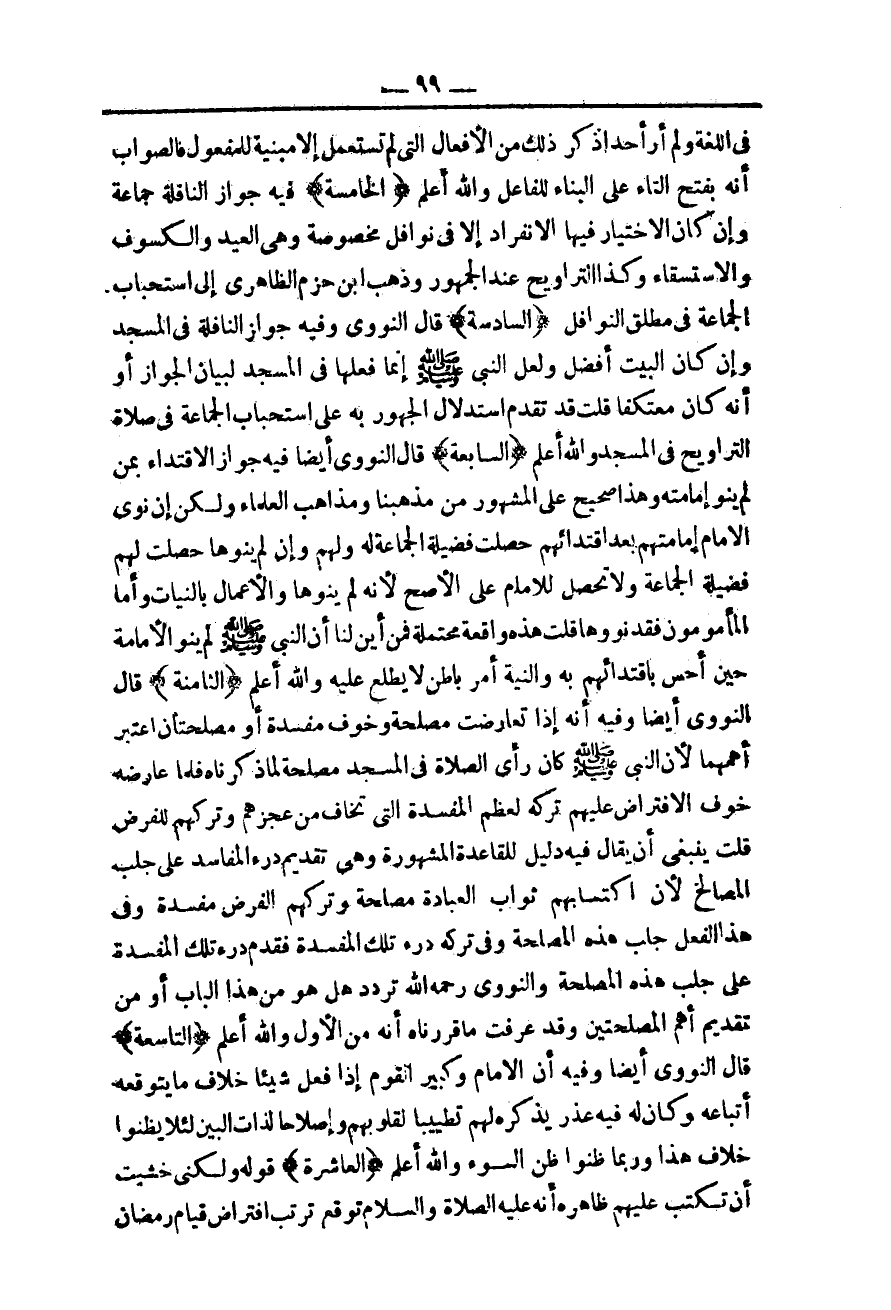 — ٩٩ —
فى اللغة ولم أر أحدا ذكر ذلك من الأفعال التى لم تستعمل إلا مبنية للمفعول فالصواب
أنه بفتح التاء على البناء للفاعل والله أعلم ﴿ الخامسة ﴾ فيه جواز النافلة جماعة
وإن كان الاختيار فيها الانفراد إلا فى نوافل مخصوصة وهى العيد والكسوف
والاستسقاء وكذا التراويح عند الجمهور وذهب ابن حزم الظاهرى إلى استحباب.
الجماعة فى مطلق النوافل ﴿ السادسة ﴾ قال النووى وفيه جواز النافلة فى المسجد
وإن كان البيت أفضل ولعل النبي ﷺ إنما فعلها فى المسجد لبيان الجواز أو
أنه كان معتكفا قلت قد تقدم استدلال الجمهور به على استحباب الجماعة فى صلاة
التراويح فى المسجد والله أعلم ﴿ السابعة ﴾ قال النووى أيضا فيه جواز الاقتداء بمن
لم ينو إمامته وهذا صحيح على المشهور من مذهبنا ومذاهب العلماء ولكن إن نوى
الامام إمامتهم بعد اقتدائهم حصلت فضيلة الجماعة له ولهم وإن لم ينوها حصلت لهم
فضيلة الجماعة ولا تحصل للامام على الأصح لأنه لم ينوها والأعمال بالنيات وأما
المأمومون فقد نووها قلت هذه واقعة محتملة فمن أين لنا أن النبي ﷺ لم ينو الأمامة
حين أحس باقتدائهم به والنية أمر باطن لا يطلع عليه والله أعلم ﴿ الثامنة ﴾ قال
النووى أيضا وفيه أنه إذا تعارضت مصلحة وخوف مفسدة أو مصلحتان اعتبر
أهمهما لأن النبي ﷺ كان رأى الصلاة فى المسجد مصلحة لما ذكرناه فلما عارضه
خوف الافتراض عليهم تركه لعظم المفسدة التى تخاف من عجزهم وتركهم للفرض
قلت ينبغى أن يقال فيه دليل للقاعدة المشهورة وهي تقديم درء المفاسد على جلب
المصالح لأن اكتسابهم ثواب العبادة مصلحة وتركهم الفرض مفسدة وفى
هذا الفعل جلب هذه المصلحة وفى تركه درء تلك المفسدة فقدم درء تلك المفسدة
على جلب هذه المصلحة والنووى رحمه الله تردد هل هو من هذا الباب أو من
تقديم أهم المصلحتين وقد عرفت ما قررناه أنه من الأول والله أعلم ﴿ التاسعة ﴾
قال النووى أيضا وفيه أن الامام وكبير القوم إذا فعل شيئا خلاف ما يتوقعه
أتباعه وكان له فيه عذر يذكره لهم تطييبا لقلوبهم وإصلاحا لذات البين لئلا يظنوا
خلاف هذا وربما ظنوا ظن السوء والله أعلم ﴿ العاشرة ﴾ قوله ولكنى خشيت
أن تكتب عليهم ظاهره أنه عليه الصلاة والسلام توقع ترتب افتراض قيام رمضان